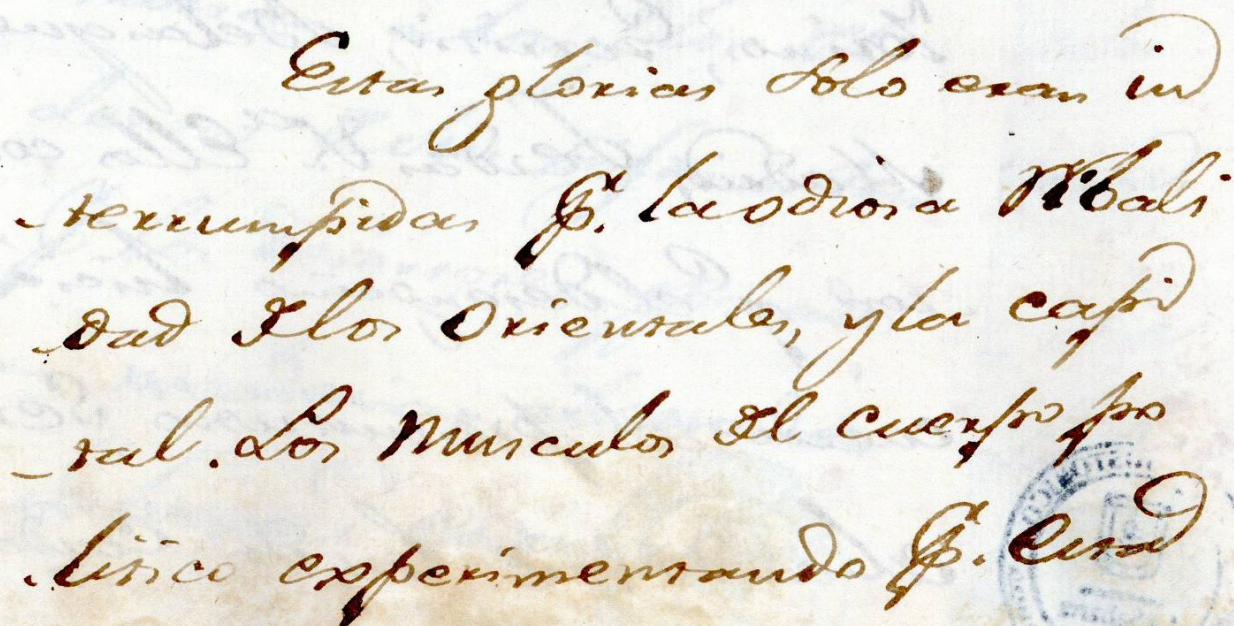 Estas glorias solo eran in
terrumpidas p.r la odiosa Ribali
dad de los Orientales, y la capi
tal. Los Musculos del cuerpo po
litico experimentando p.r esta